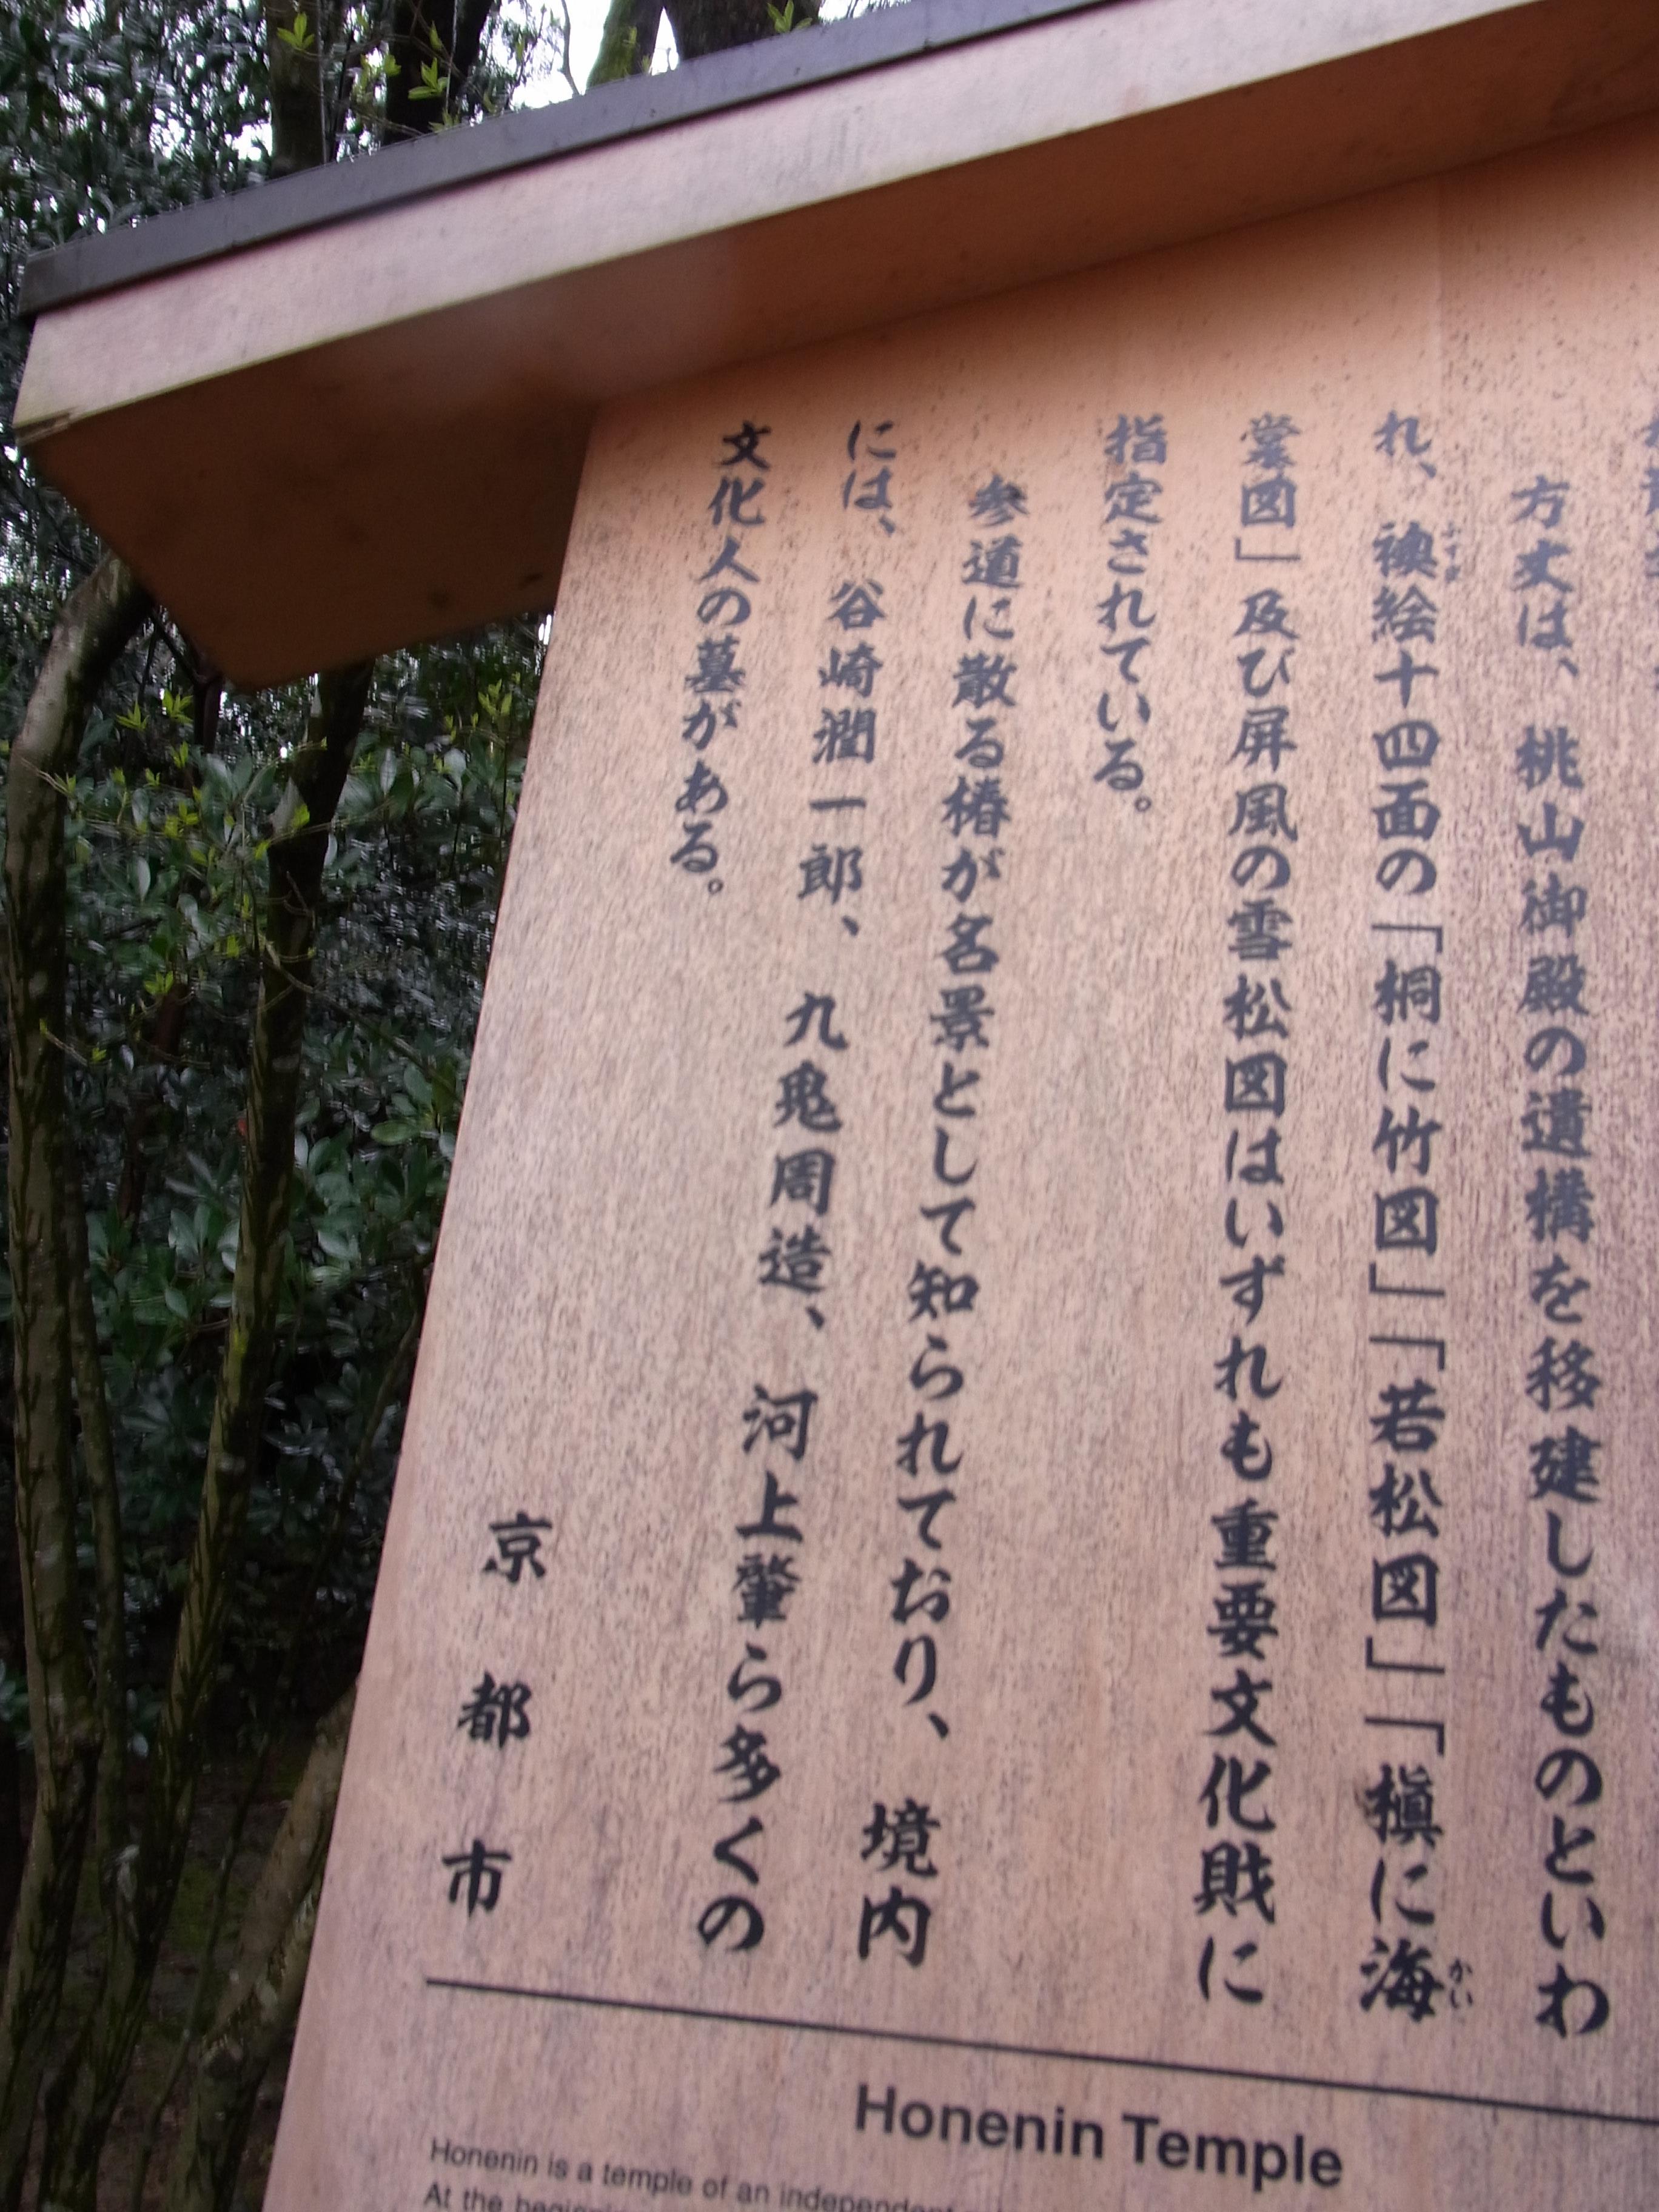 方丈は、桃山御殿の遺構を移建したものといわ
れ、襖絵十四面の「桐に竹図」「若松図」「槇に海
棠図」及び屏風の雪松図はいずれも重要文化財に
指定されている。
参道に散る椿が名景として知られており、境内
には、谷崎潤一郎、九鬼周造、河上肇ら多くの
文化人の墓がある。
京都市
Honenin Temple
Honenin is a temple of an independent
At the